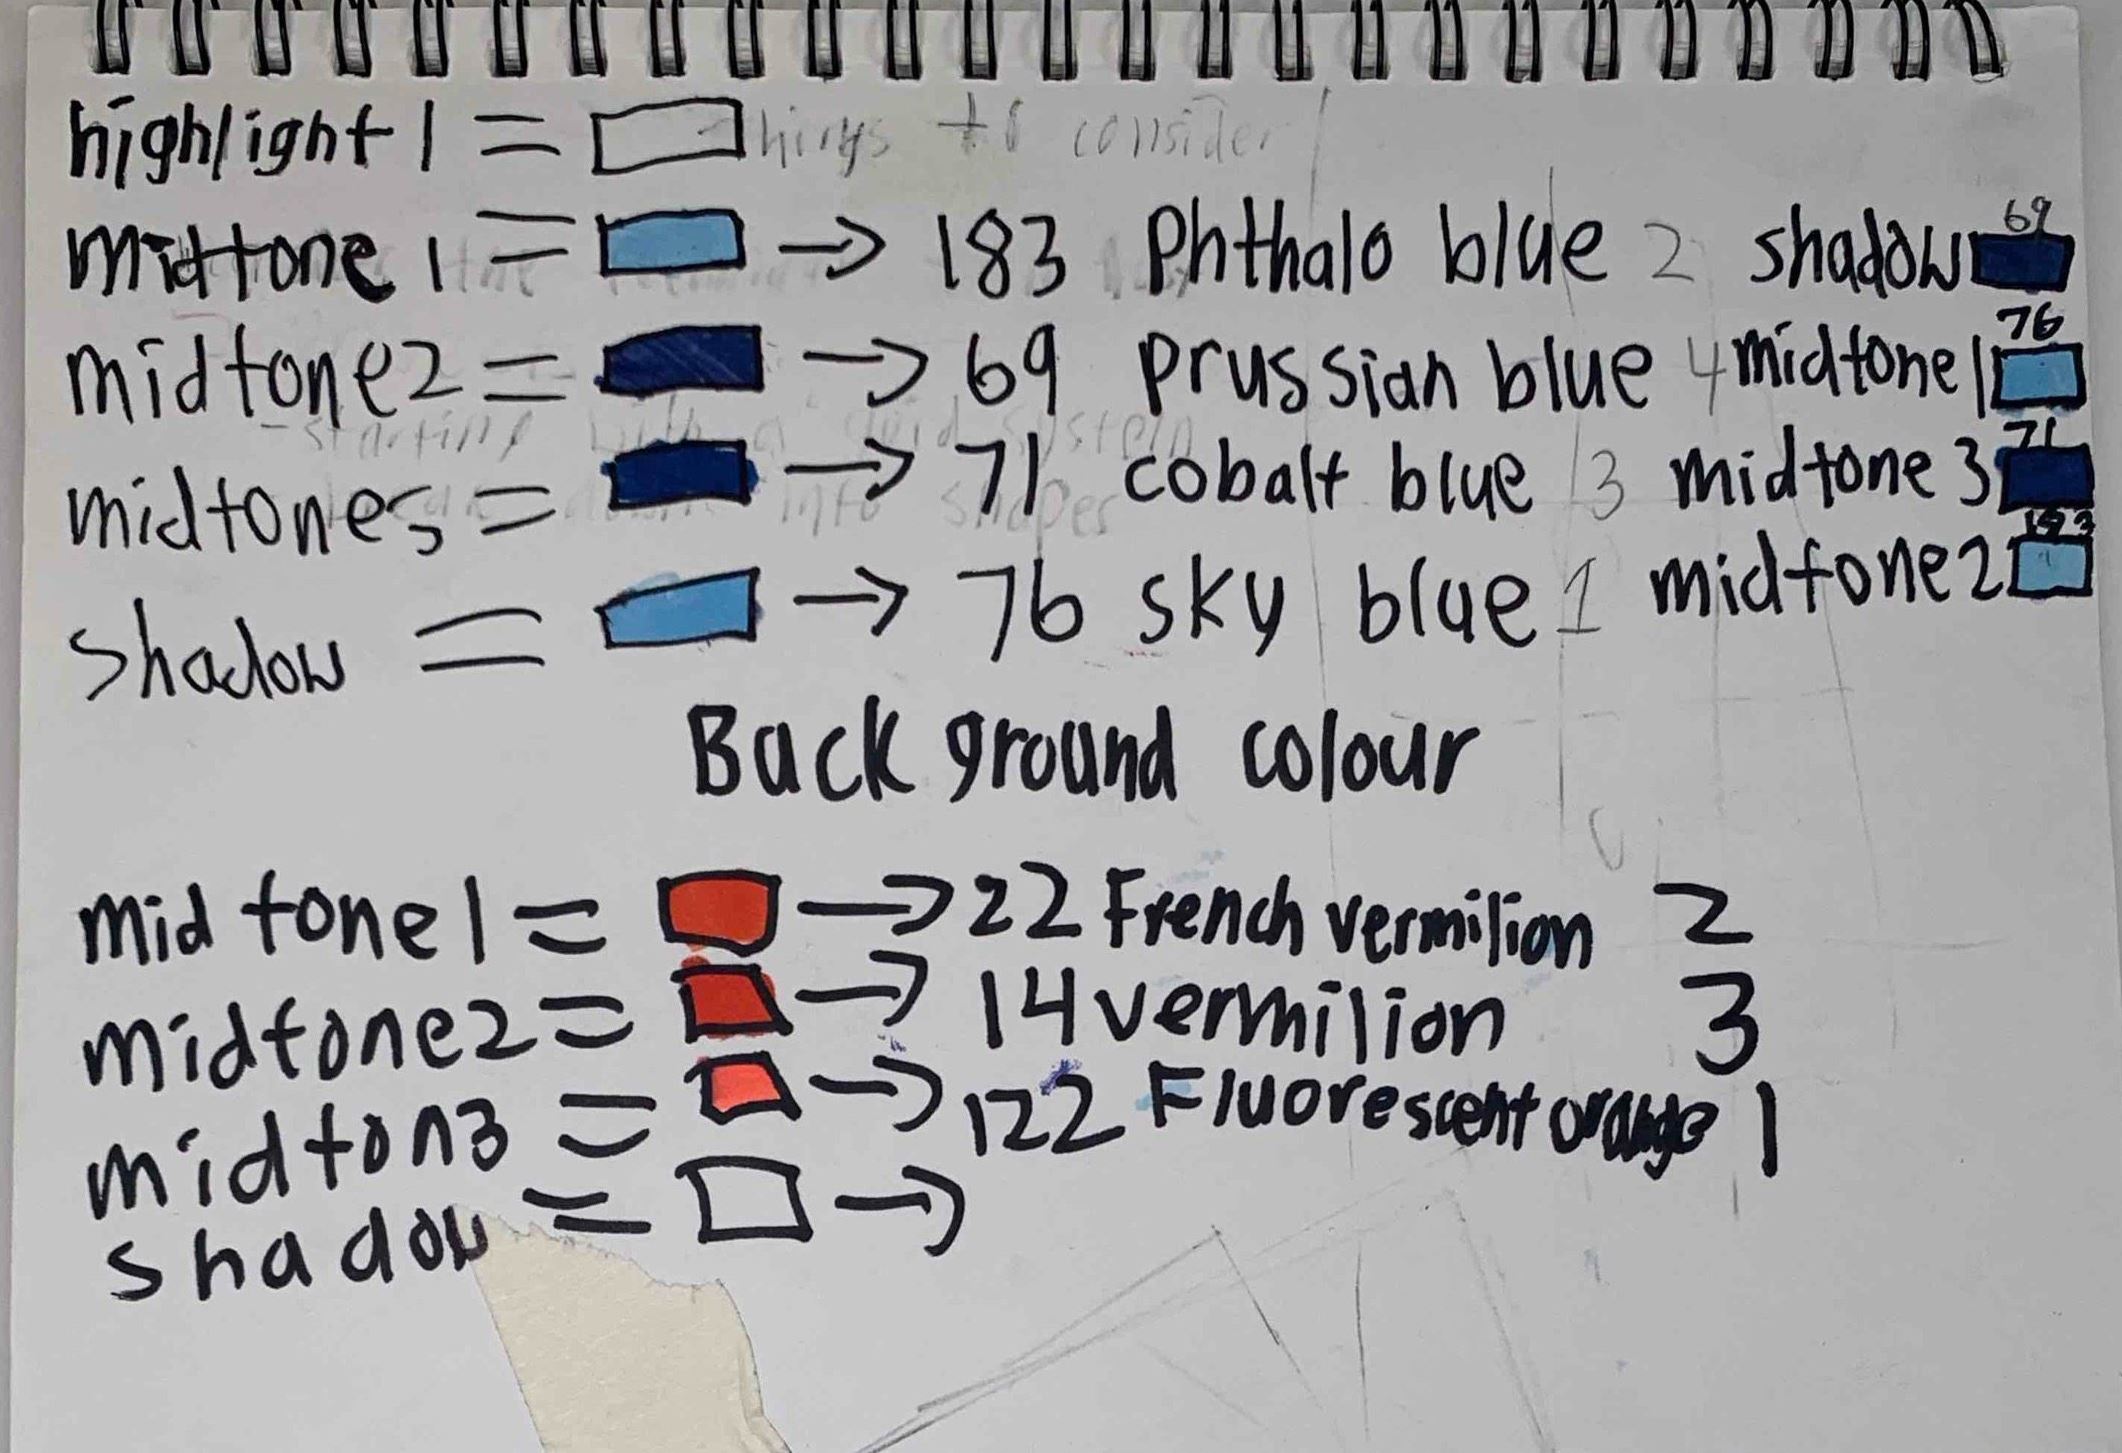 highlight 1 = things to consider
midtone 1 = → 183 Phthalo blue 2 shadow 69
midtone2 = → 69 prussian blue 4 midtone 1 76
- starting with a grid system
midtones = → 71 cobalt blue 3 midtone 3 71
into shapes
shadow = → 76 sky blue 1 midtone2 183
Back ground colour
mid tone1 = → 22 French vermilion 2
midtone2 = → 14 vermilion 3
midton3 = → 122 Fluorescent orange 1
shadow = →